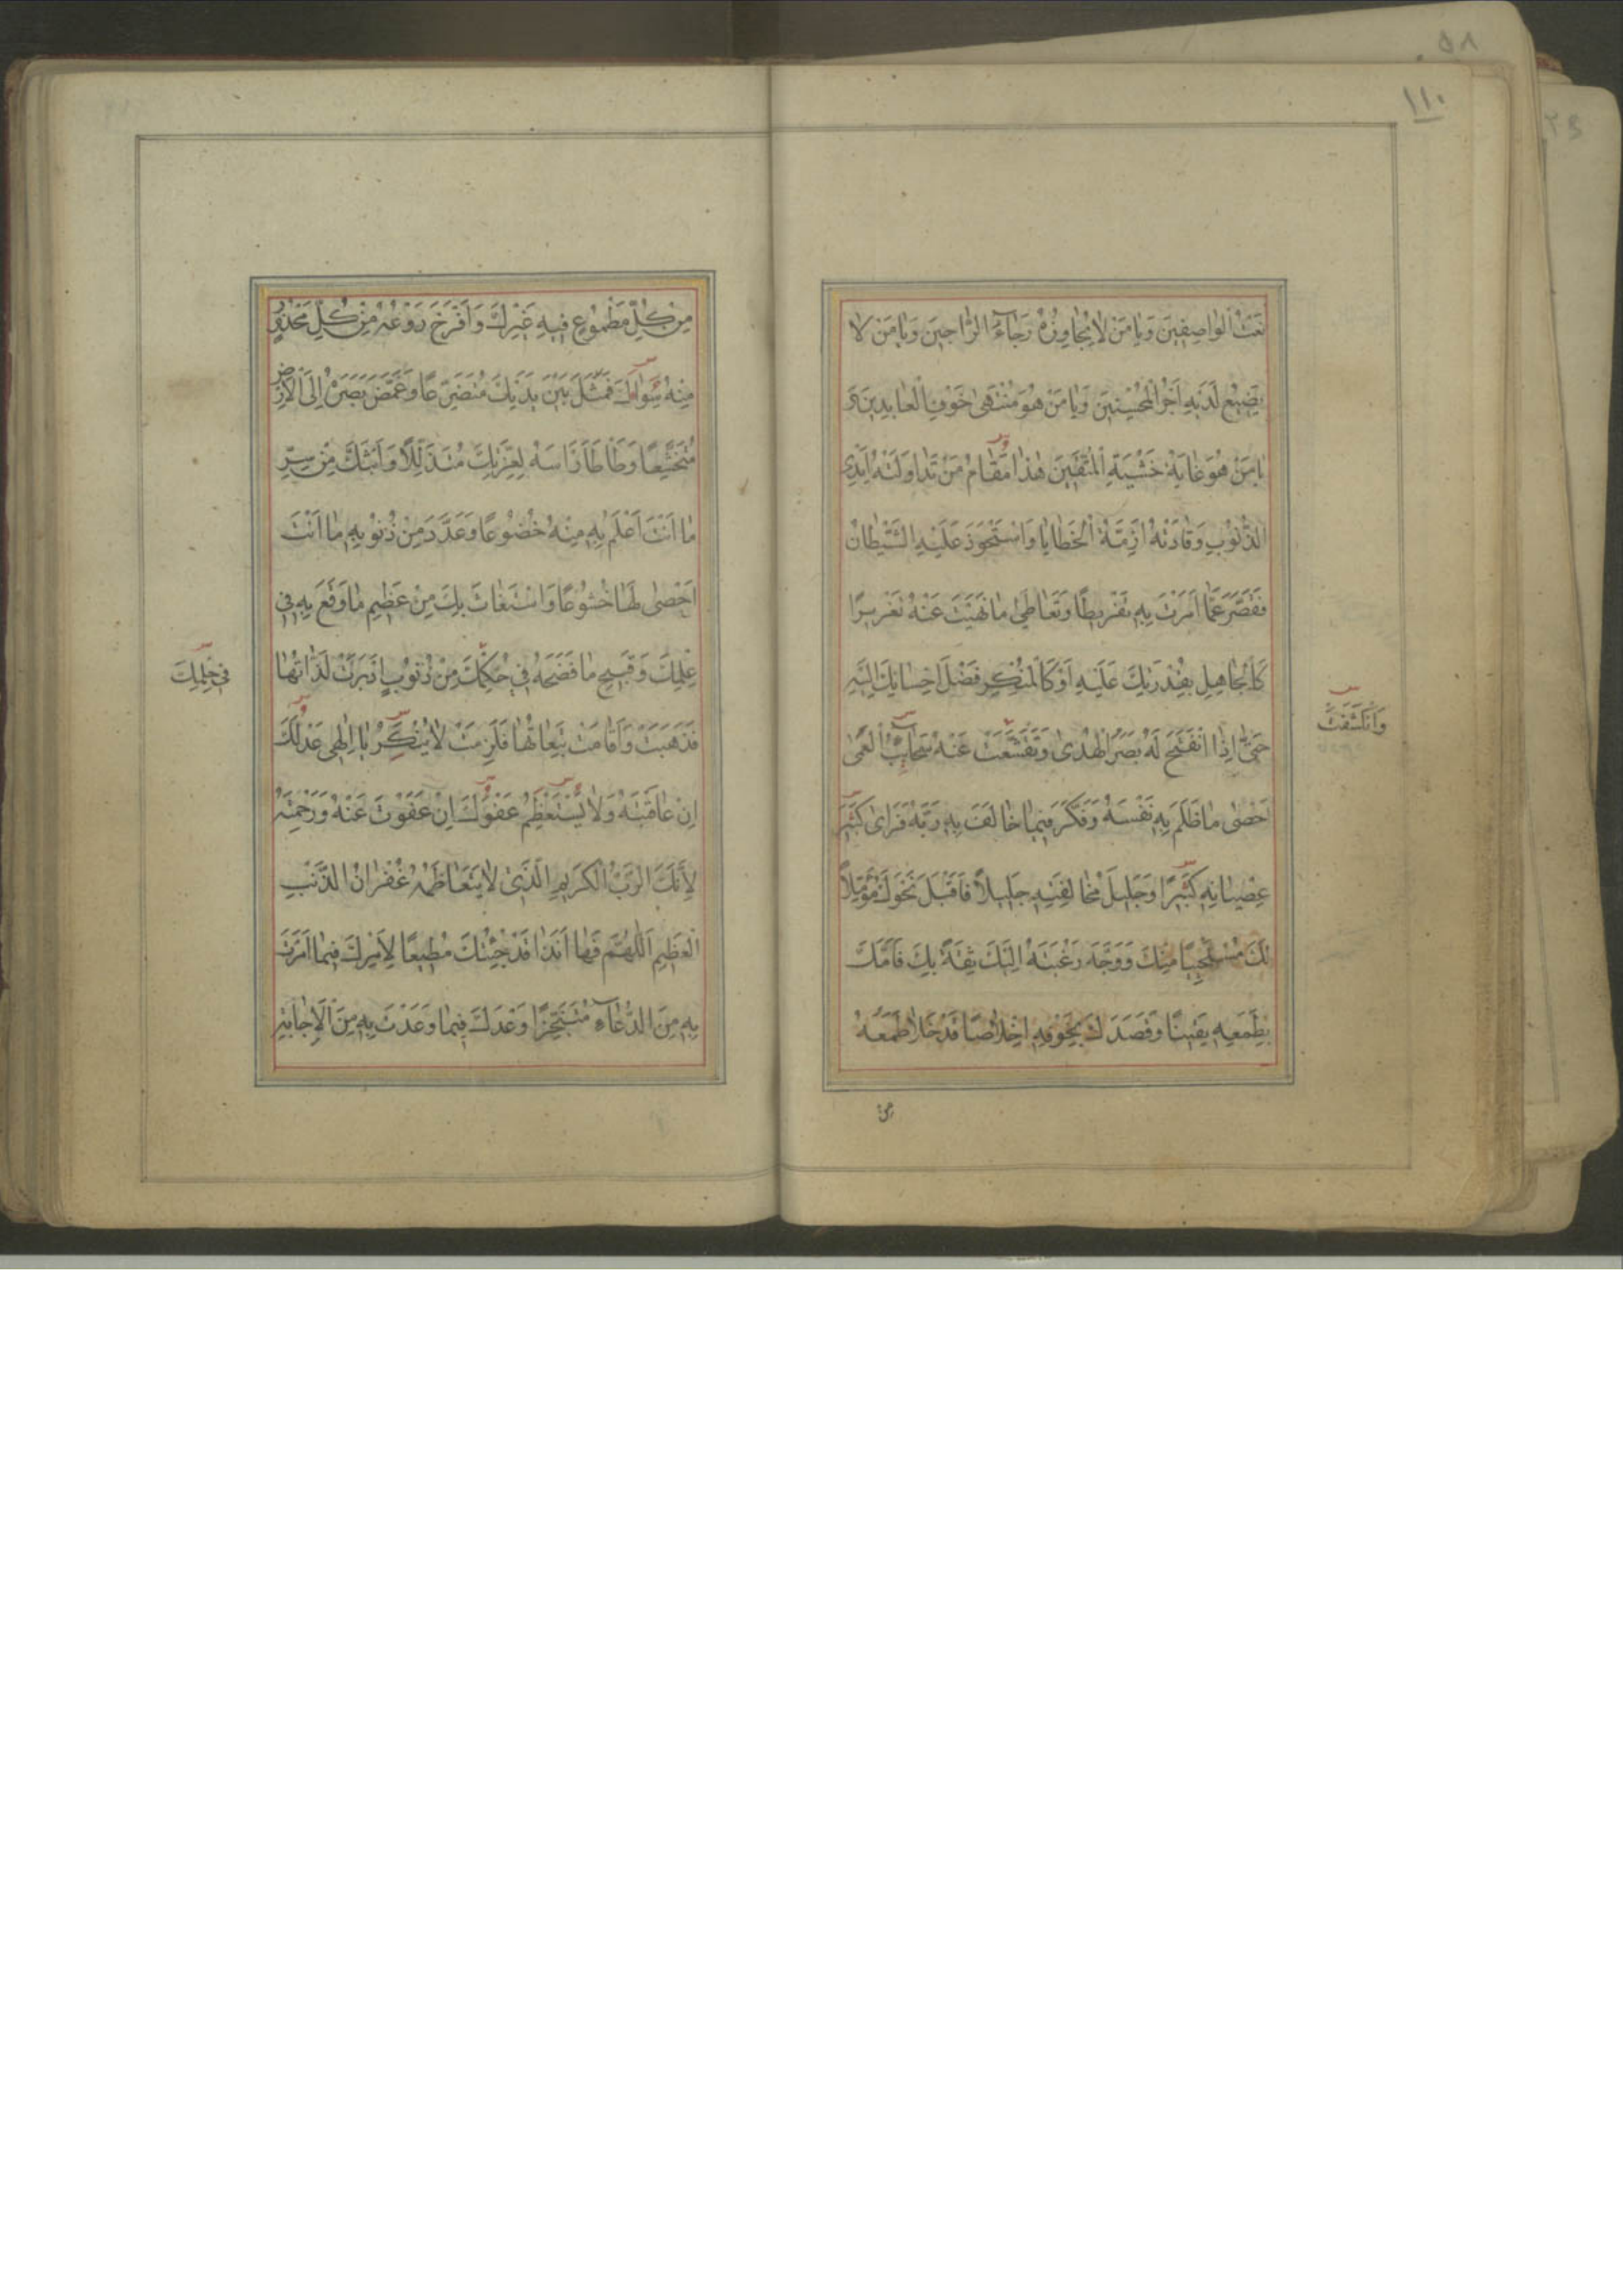 ١١٠
نَعْتُ الْوَاصِفِينَ وَيَا مَنْ لَا يُجَاوِزُهُ رَجَاءُ الرَّاجِينَ وَيَا مَنْ لَا
يَضِيعُ لَدَيْهِ أَجْرُ الْمُحْسِنِينَ وَيَا مَنْ هُوَ مُنْتَهَى خَوْفِ الْعَابِدِينَ وَ
يَا مَنْ هُوَ غَايَةُ خَشْيَةِ الْمُتَّقِينَ هٰذَا مَقَامُ مَنْ تَدَاوَلَتْهُ أَيْدِي
الذُّنُوبِ وَقَادَتْهُ أَزِمَّةُ الْخَطَايَا وَاسْتَحْوَذَ عَلَيْهِ الشَّيْطَانُ
فَقَصَّرَ عَمَّا أَمَرْتَ بِهِ تَفْرِيطًا وَتَعَاطَىٰ مَا نَهَيْتَ عَنْهُ تَغْرِيرًا
كَالْجَاهِلِ بِقُدْرَتِكَ عَلَيْهِ أَوْ كَالْمُنْكِرِ فَضْلَ إِحْسَانِكَ إِلَيْهِ
حَتَّىٰ إِذَا انْفَتَحَ لَهُ بَصَرُ الْهُدَىٰ وَتَقَشَّعَتْ عَنْهُ سَحَائِبُ الْعَمَىٰ
وَانْكَشَفَتْ
أَحْصَىٰ مَا ظَلَمَ بِهِ نَفْسَهُ وَفَكَّرَ فِيمَا خَالَفَ بِهِ رَبَّهُ فَرَأَىٰ كَبِيرَ
عِصْيَانِهِ كَبِيرًا وَجَلِيلَ مُخَالَفَتِهِ جَلِيلًا فَأَقْبَلَ نَحْوَكَ مُؤَمِّلًا
لَكَ مُسْتَحْيِيًا مِنْكَ وَوَجَّهَ رَغْبَتَهُ إِلَيْكَ ثِقَةً بِكَ فَأَمَّكَ
بِطَمَعِهِ يَقِينًا وَقَصَدَكَ بِخَوْفِهِ إِخْلَاصًا قَدْ خَلَا طَمَعُهُ
مِنْ
مِنْ كُلِّ مَطْمُوعٍ فِيهِ غَيْرِكَ وَأَفْرَخَ رَوْعُهُ مِنْ كُلِّ مَحْذُورٍ
مِنْهُ سِوَاكَ فَمَثَلَ بَيْنَ يَدَيْكَ مُتَضَرِّعًا وَغَمَّضَ بَصَرَهُ إِلَى الْأَرْضِ
مُتَخَشِّعًا وَطَأْطَأَ رَأْسَهُ لِعِزَّتِكَ مُتَذَلِّلًا وَأَبَثَّكَ مِنْ سِرِّهِ
مَا أَنْتَ أَعْلَمُ بِهِ مِنْهُ خُضُوعًا وَعَدَّدَ مِنْ ذُنُوبِهِ مَا أَنْتَ
أَحْصَىٰ لَهَا خُشُوعًا وَاسْتَغَاثَ بِكَ مِنْ عَظِيمِ مَا وَقَعَ بِهِ فِي
عِلْمِكَ وَقَبِيحِ مَا فَضَحَهُ فِي حُكْمِكَ مِنْ ذُنُوبٍ أَدْبَرَتْ لَذَّاتُهَا
فِي حِلْمِكَ
فَذَهَبَتْ وَأَقَامَتْ تَبِعَاتُهَا فَلَزِمَتْ لَا يُنْكِرُ يَا إِلٰهِي عَدْلَكَ
إِنْ عَاقَبْتَهُ وَلَا يَسْتَعْظِمُ عَفْوَكَ إِنْ عَفَوْتَ عَنْهُ وَرَحِمْتَهُ
لِأَنَّكَ الرَّبُّ الْكَرِيمُ الَّذِي لَا يَتَعَاظَمُهُ غُفْرَانُ الذَّنْبِ
الْعَظِيمِ اللّٰهُمَّ فَهَا أَنَا ذَا قَدْ جِئْتُكَ مُطِيعًا لِأَمْرِكَ فِيمَا أَمَرْتَ
بِهِ مِنَ الدُّعَاءِ مُتَنَجِّزًا وَعْدَكَ فِيمَا وَعَدْتَ بِهِ مِنَ الْإِجَابَةِ